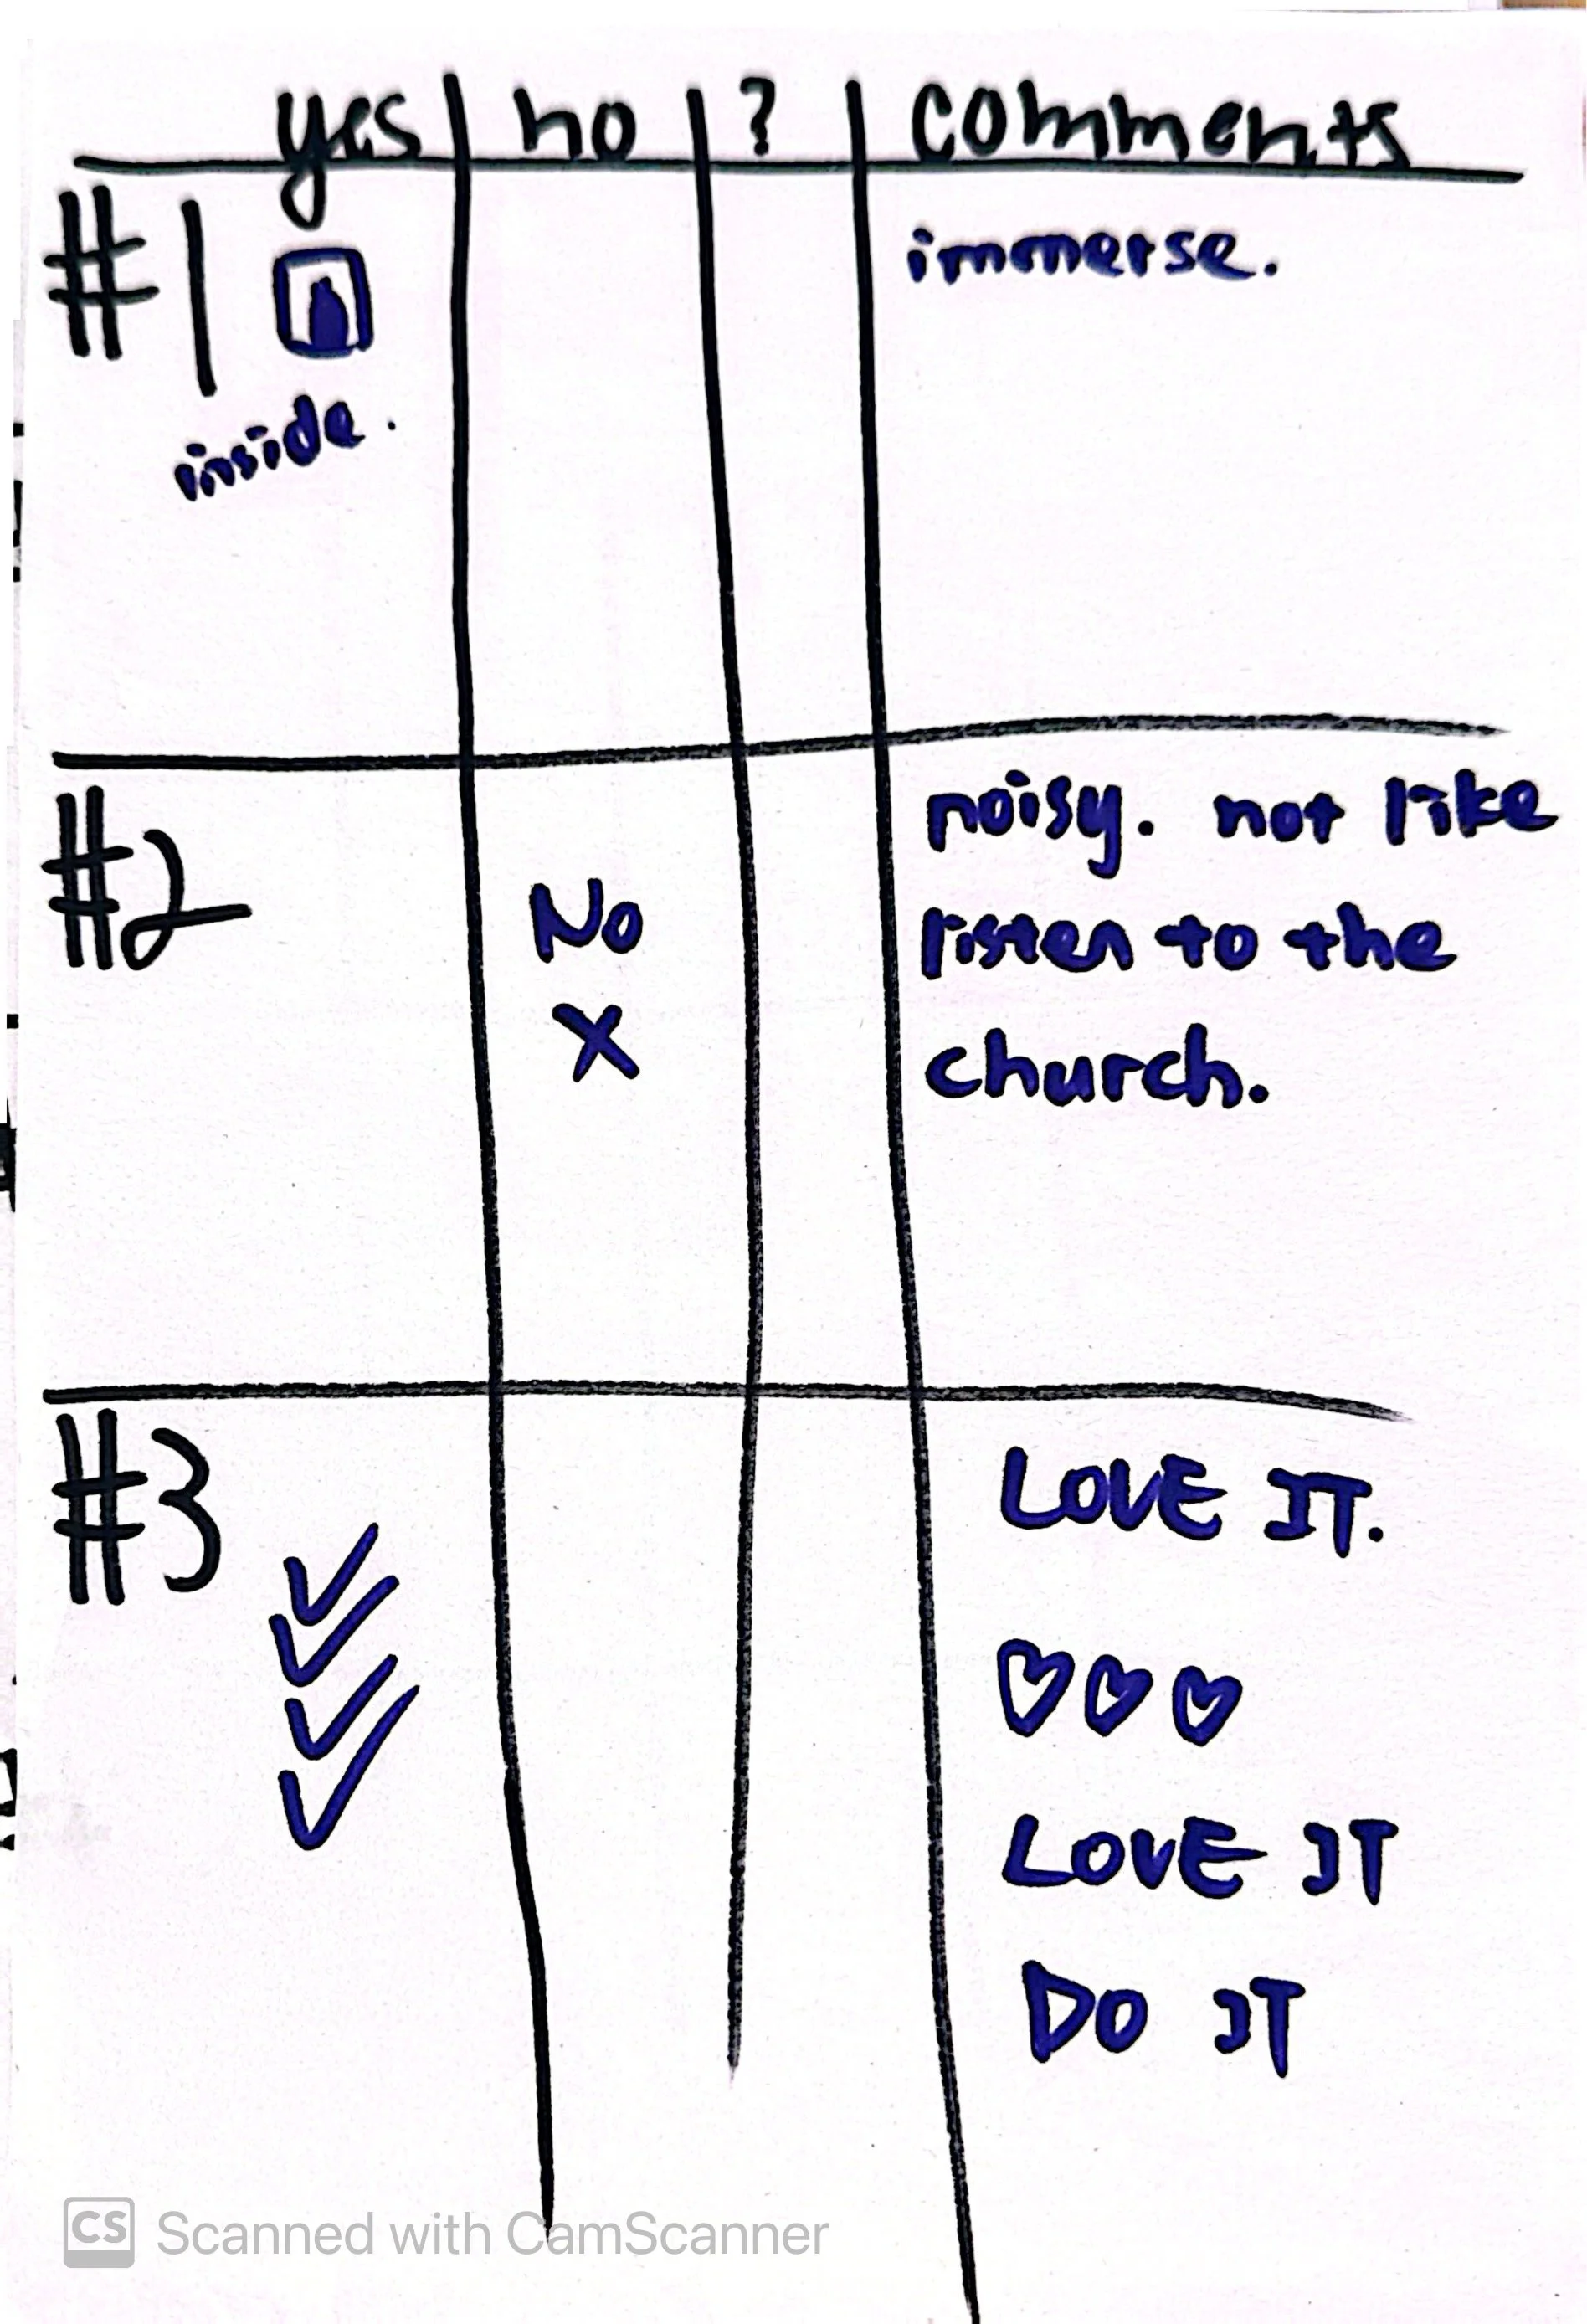 yes no ? comments
#1 immerse.
inside.
#2 noisy. not like
No listen to the
X church.
#3 LOVE IT.
♡♡♡
LOVE IT
DO IT
CS Scanned with CamScanner